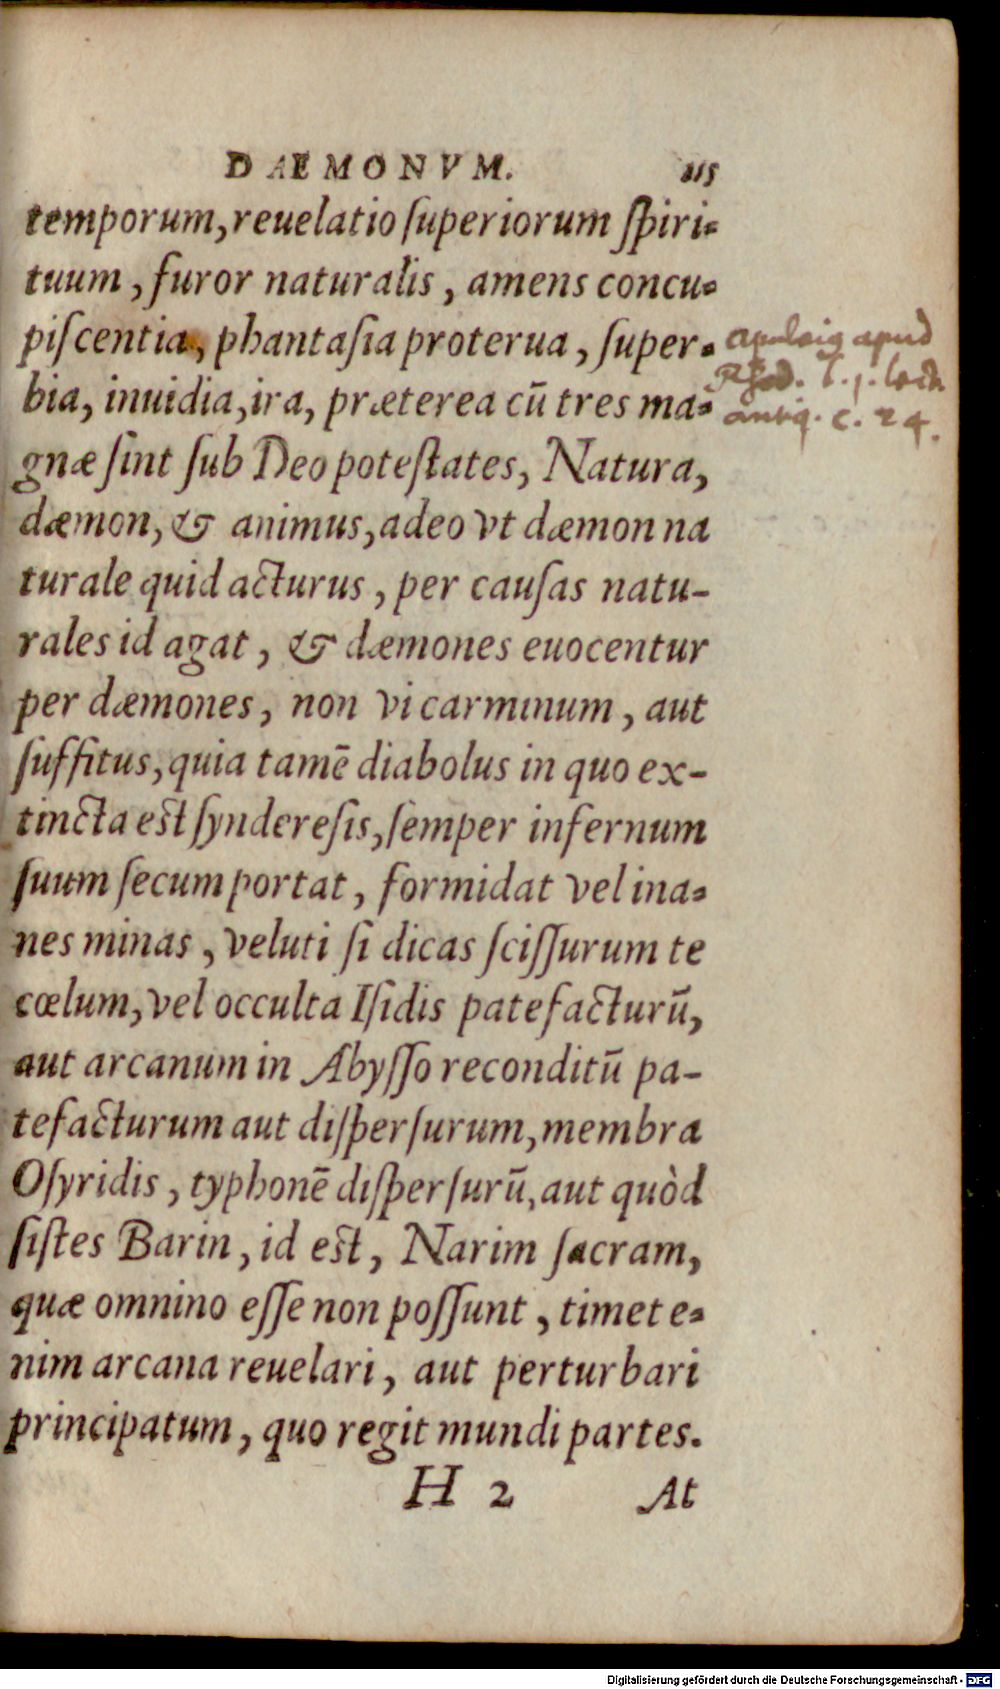 DAEMONVM. 115
temporum, reuelatio ſuperiorum ſpiri-
tuum, furor naturalis, amens concu-
piſcentia, phantaſia proterua, ſuper-
bia, inuidia, ira, præterea cū tres ma-
gnæ ſint ſub Deo poteſtates, Natura,
dæmon, & animus, adeo vt dæmon na
turale quid acturus, per cauſas natu-
rales id agat, & dæmones euocentur
per dæmones, non vi carminum, aut
ſuffitus, quia tamē diabolus in quo ex-
tincta est ſyndereſis, ſemper infernum
ſuum ſecum portat, formidat vel ina-
nes minas, veluti ſi dicas ſciſſurum te
cœlum, vel occulta Iſidis patefacturū,
aut arcanum in Abyſſo reconditū pa-
tefacturum aut diſperſurum, membra
Oſyridis, typhonē diſperſurū, aut quòd
ſiſtes Barin, id est, Narim ſacram,
quæ omnino eſſe non poſſunt, timet e-
nim arcana reuelari, aut perturbari
principatum, quo regit mundi partes.
H 2 At
apuleig apud
Rhod. l. j. lect.
antiq. c. 24.
Digitalisierung gefördert durch die Deutsche Forschungsgemeinschaft - DFG